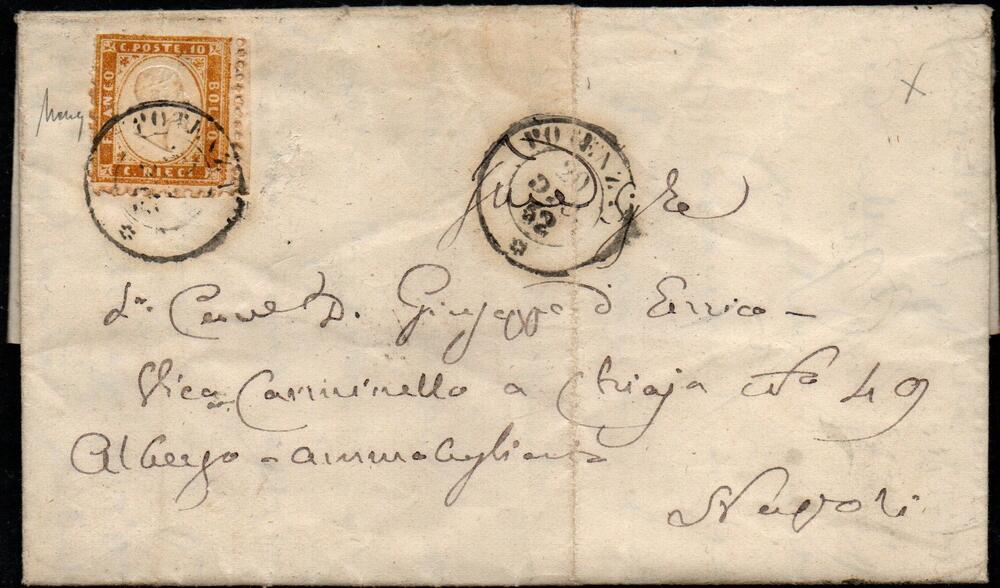 C. POSTE. 10
FRANCO
BOLLO
C. DIECI
POTENZA
POTENZA
20
DIC
62
D. Giuseppe d'Errico
Vico Carminello a Chiaja No 49
Albergo ammobigliato
Napoli